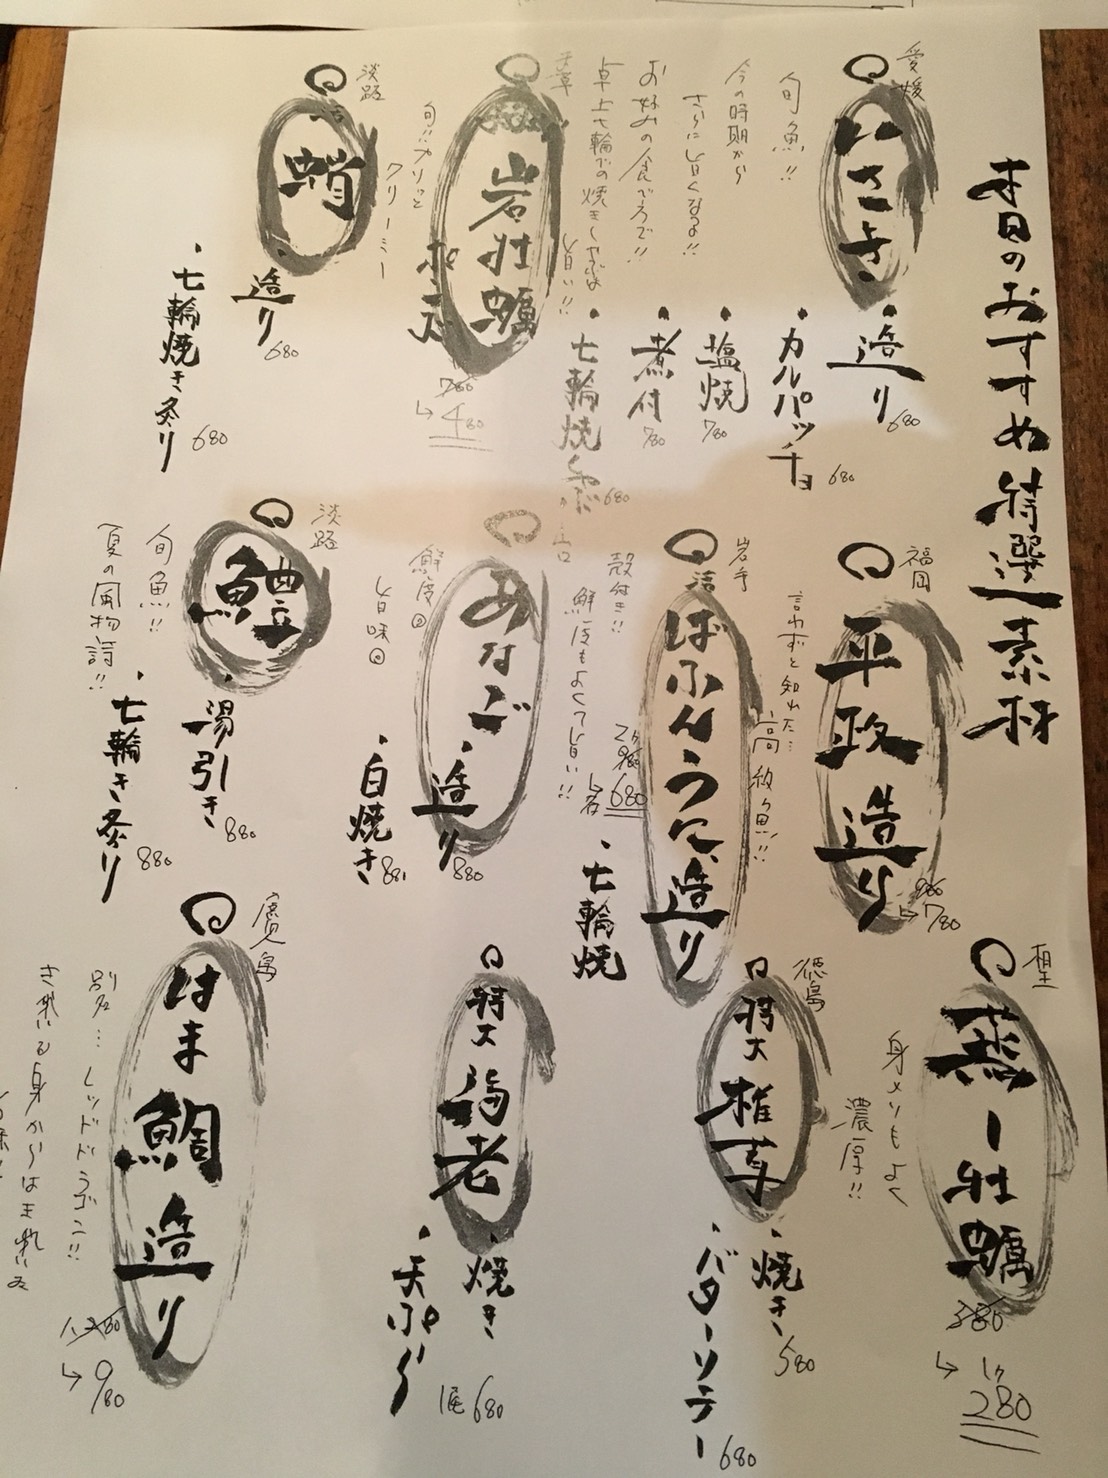 本日のおすすめ特選素材
愛媛
いさき
旬魚!!
今の時期から
さらに旨くなるよ!!
お好みの食べ方で!!
・造り 680
・カルパッチョ 680
・塩焼 780
・煮付 780
・七輪焼き 680
天草
岩牡蠣
ポン酢
旬!!プリッと
クリーミー
780
↳480
淡路
活
蛸
・造り 680
・七輪焼き炙り 680
福岡
平政造り
言わずと知れた…
高級魚!!
980
↳780
岩手
活
ばふんうに造り
殻付き!!
鮮度もよくて旨い!!
680
・七輪焼
あなご
鮮度◎
旨味◎
・造り 880
・白焼き 880
淡路
鱧
旬魚!!
夏の風物詩!!
・湯引き 880
・七輪き炙り 880
蒸し牡蠣
身メリもよく
濃厚!!
380
↳1ヶ
280
徳島
特大
椎茸
・焼き 580
・バターソテー 680
特大
海老
・焼き
・天ぷら
1尾680
鹿児島
はま鯛造り
別名…レッドドラゴン!!
1,280
↳980